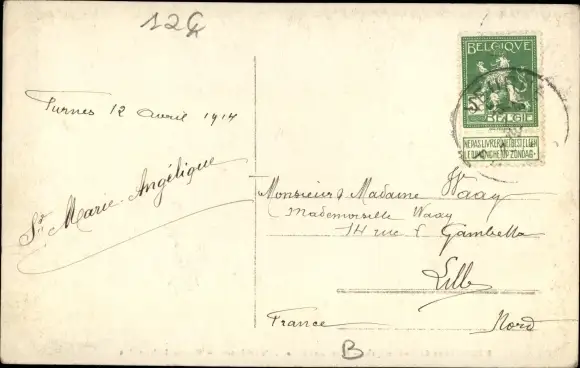 Furnes 12 avril 1914
Sr Marie-Angélique
BELGIQUE
BELGIË
NE PAS LIVRER NIET BESTELLEN
LE DIMANCHE OP ZONDAG
Monsieur & Madame Waay
Mademoiselle Waay
14 rue Gambetta
Lille
France Nord
B